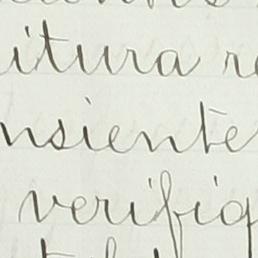 itura re
nsiente
verifiq